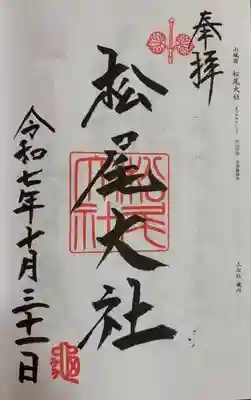 奉拝
山城国 松尾大社
松尾大社
松尾大社
令和七年十月三十一日